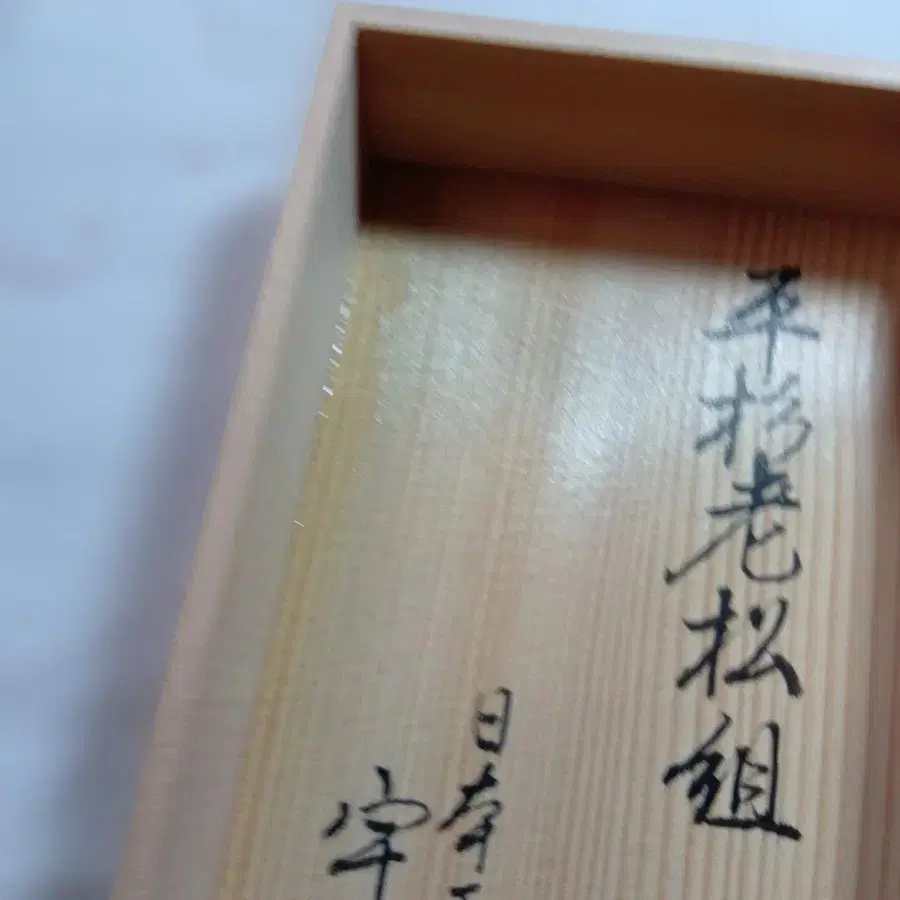 平杉老松組
日本
宇